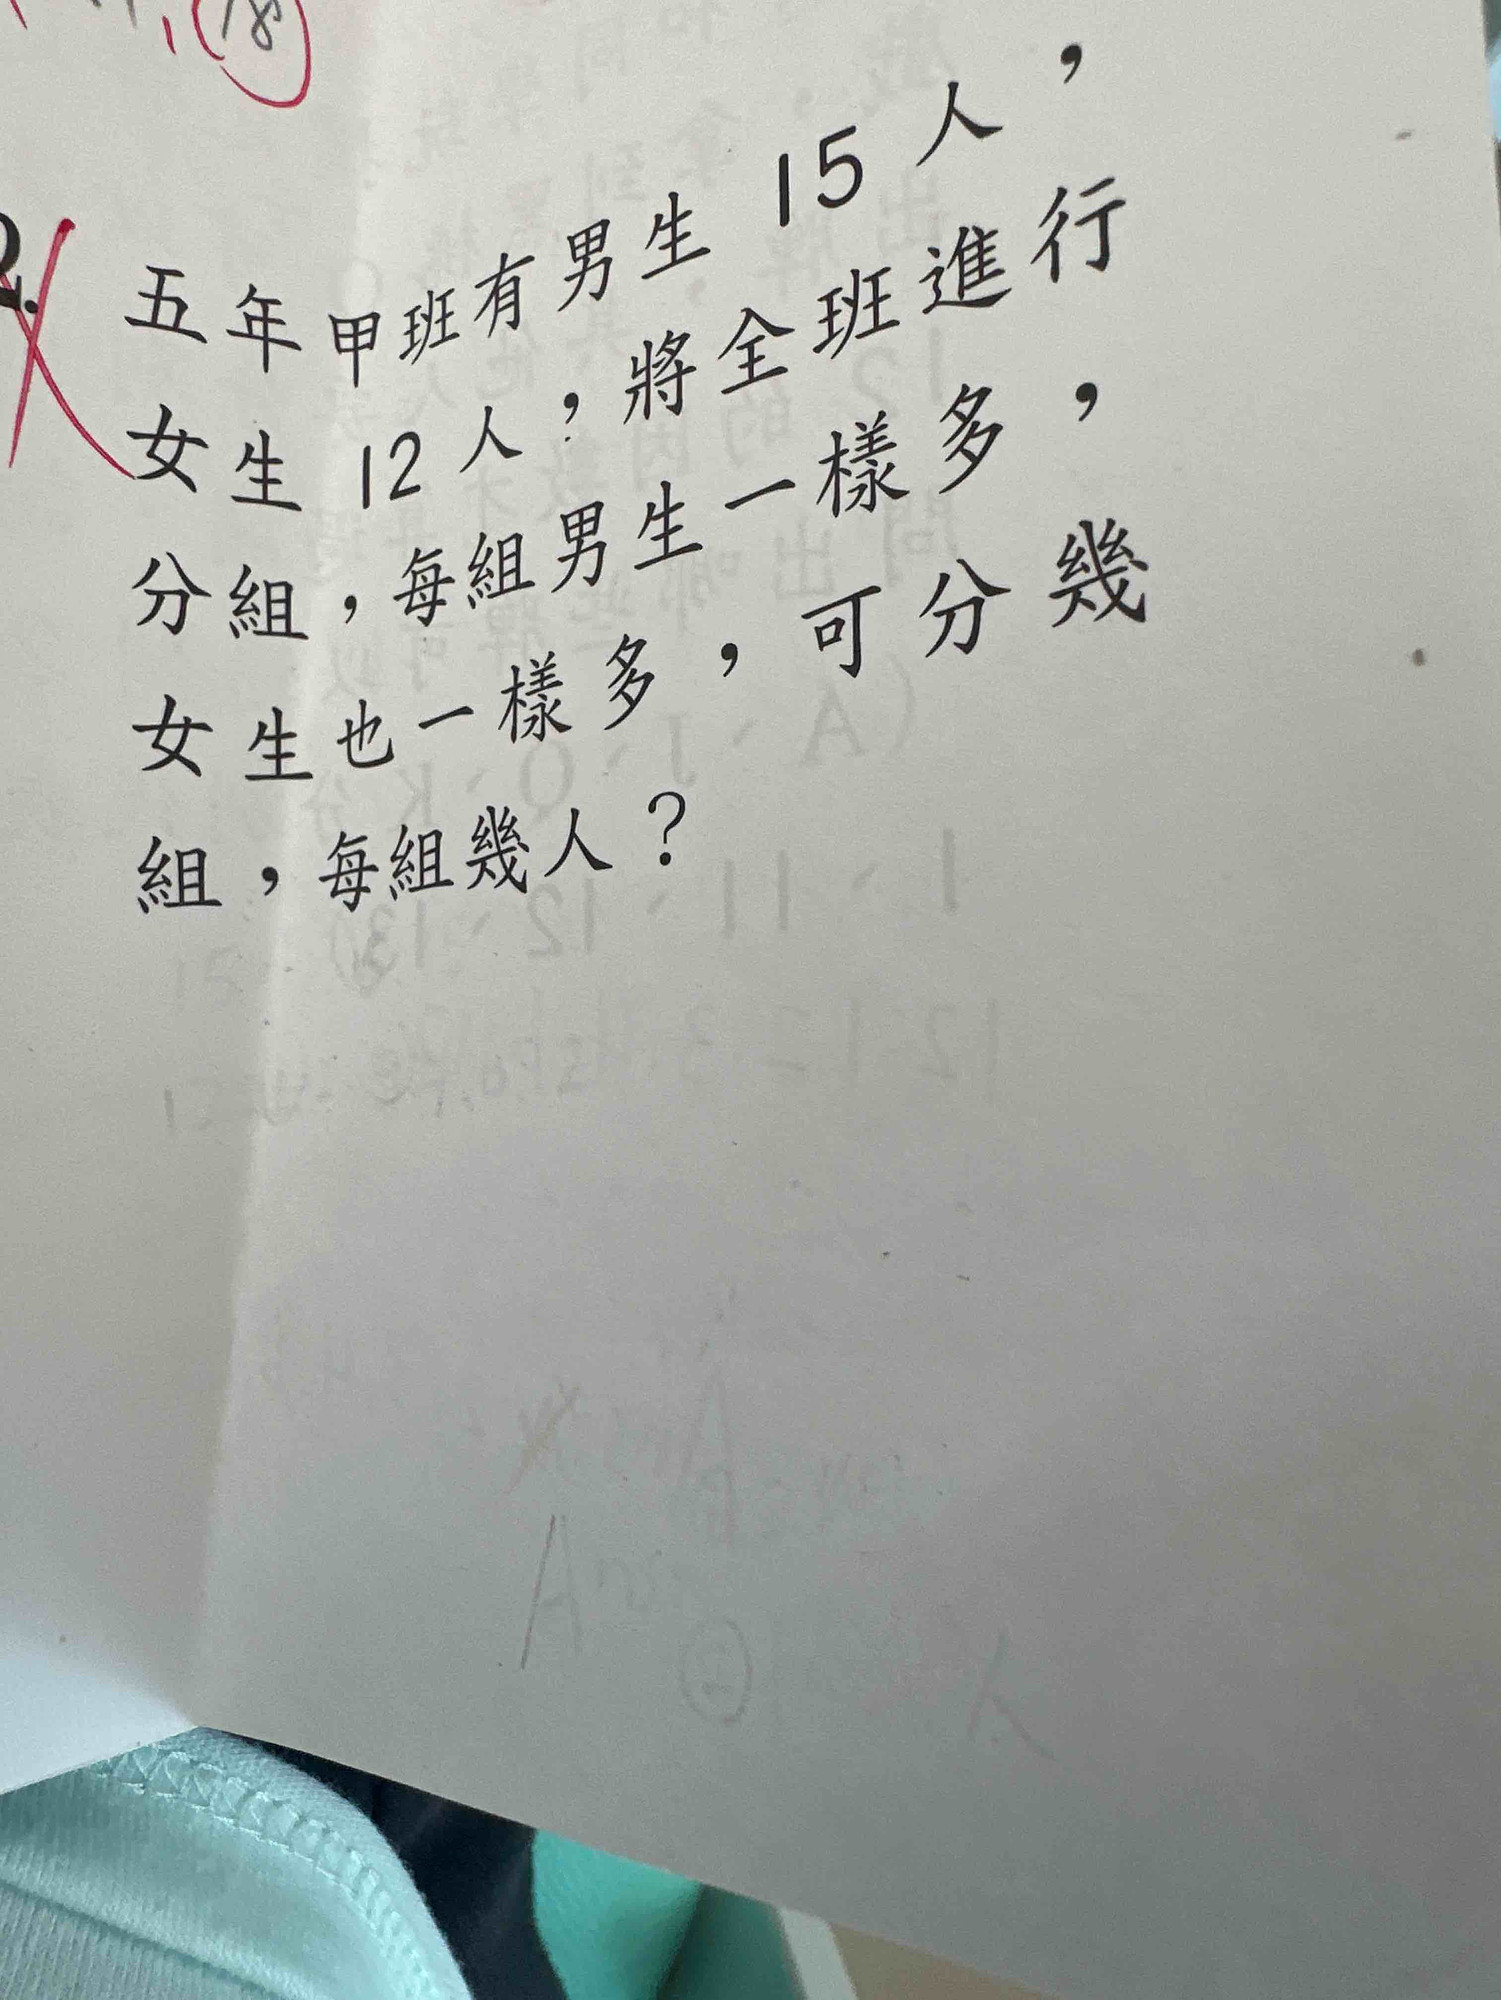 18
2.
五年甲班有男生15人，
女生12人，將全班進行
分組，每組男生一樣多，
女生也一樣多，可分幾
組，每組幾人？